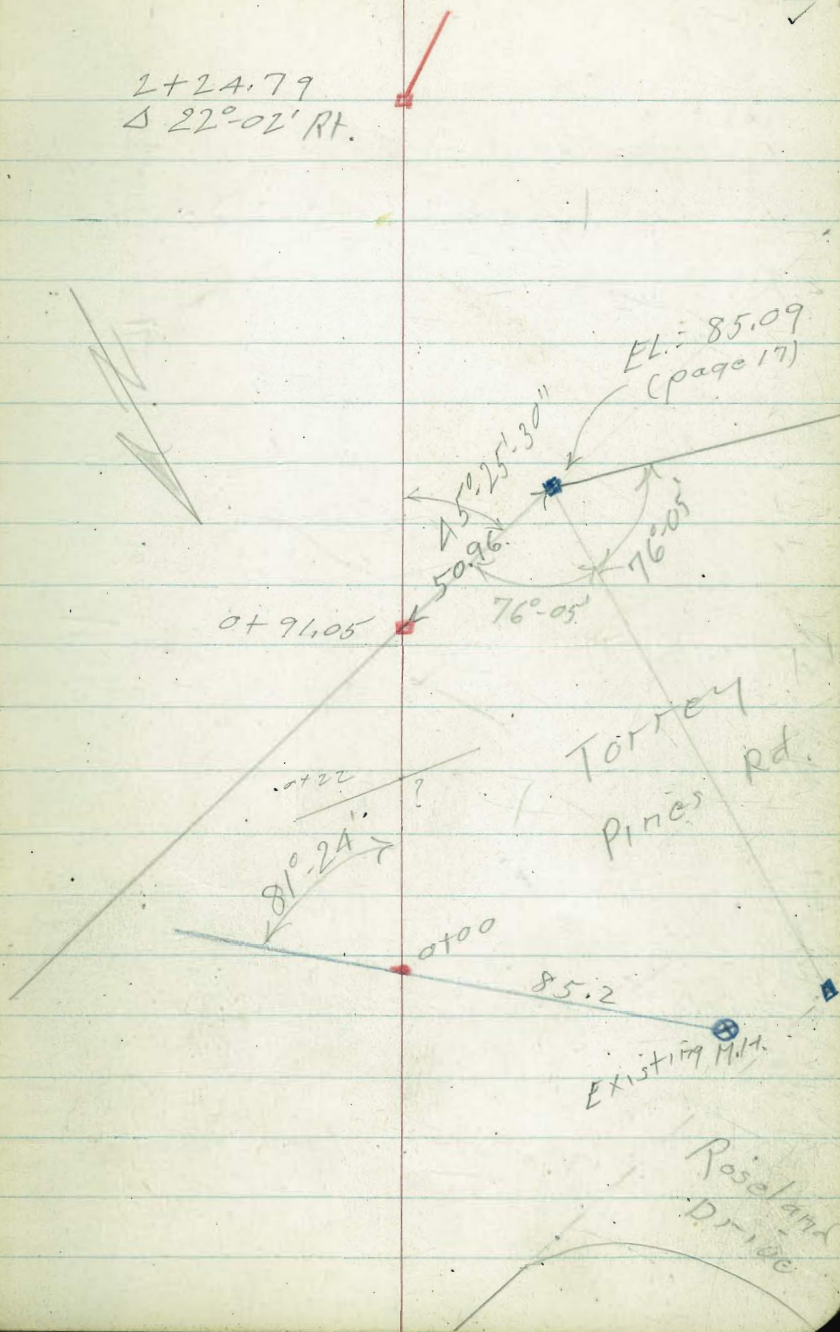 2+24.79
Δ 22°-02' Rt.
EL.= 85.09
(page 17)
45°-25'-30"
50.96
76°-05'
76°-05'
0+91.05
Torrey
Pines Rd.
0+22
?
81°-24'
0+00
85.2
Existing M.H.
Roseland
Drive